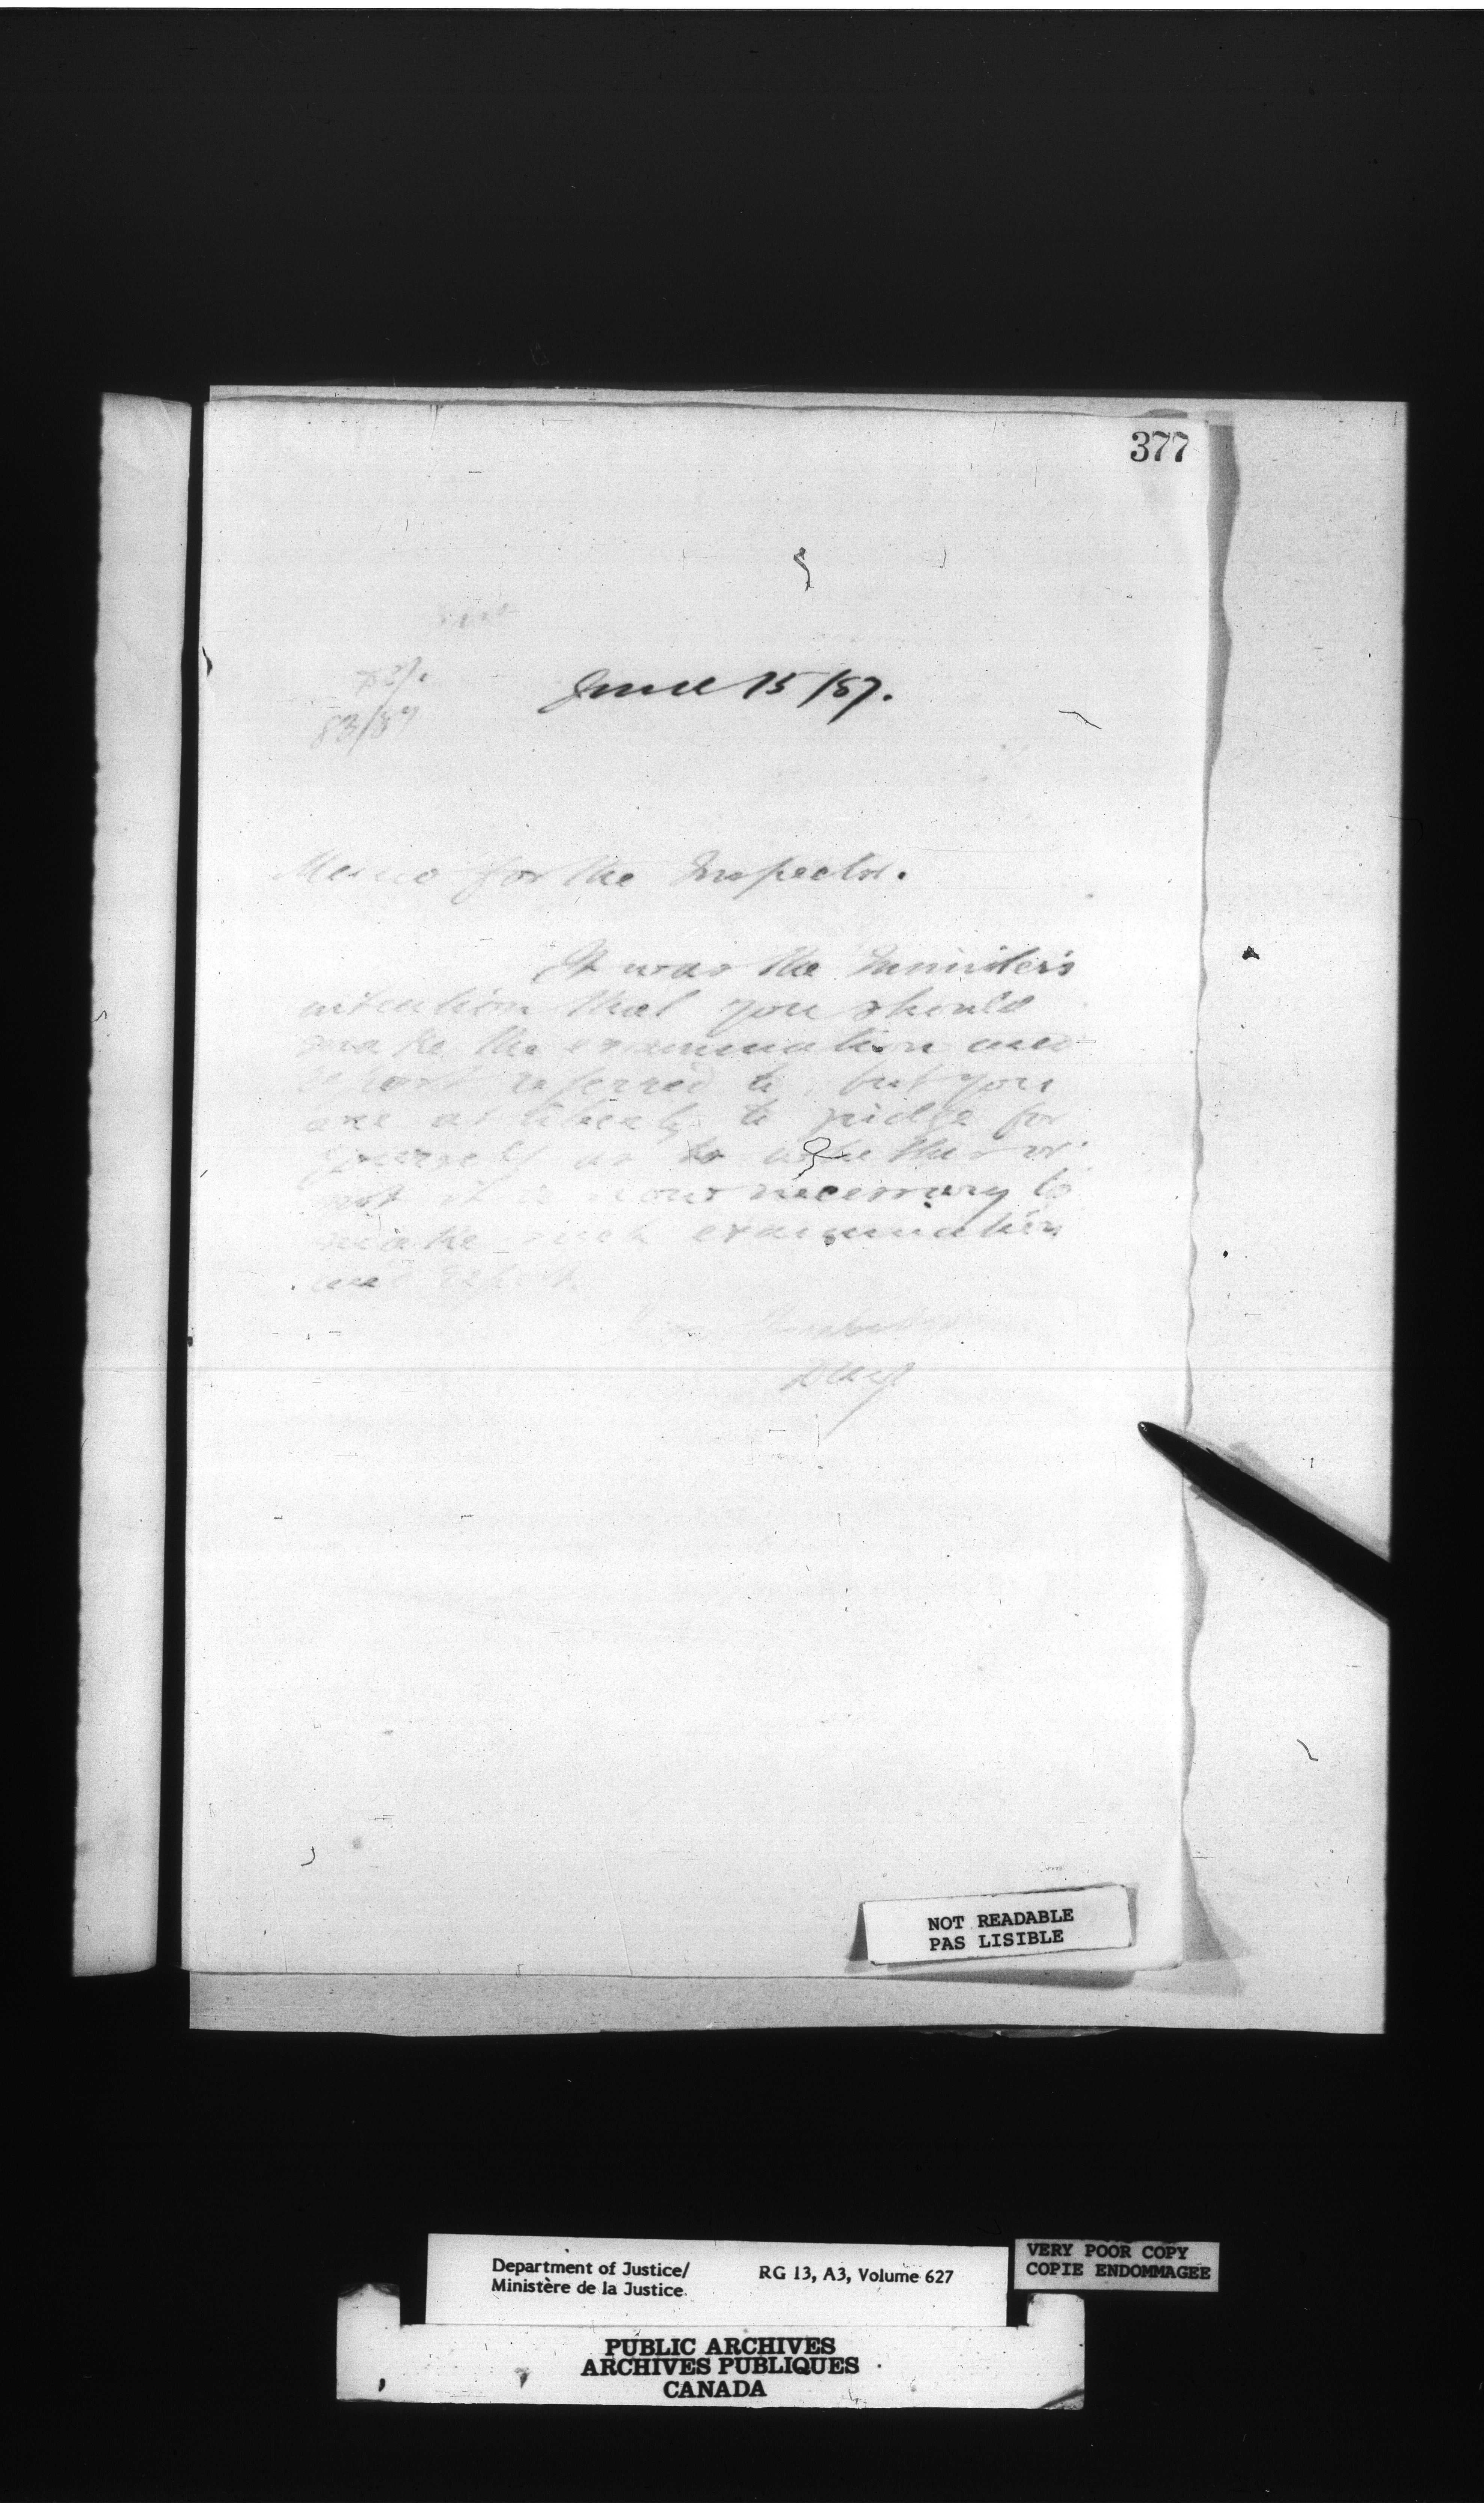 377
June 15/87.
83/87
Memo for the Inspector.
It was the Minister's
intention that you should
make the examination and
report referred to, but you
are at liberty to judge for
yourself as to whether or
not it is now necessary to
make such examination
and report.
NOT READABLE
PAS LISIBLE
Department of Justice/
Ministère de la Justice
RG 13, A3, Volume 627
VERY POOR COPY
COPIE ENDOMMAGEE
PUBLIC ARCHIVES
ARCHIVES PUBLIQUES
CANADA